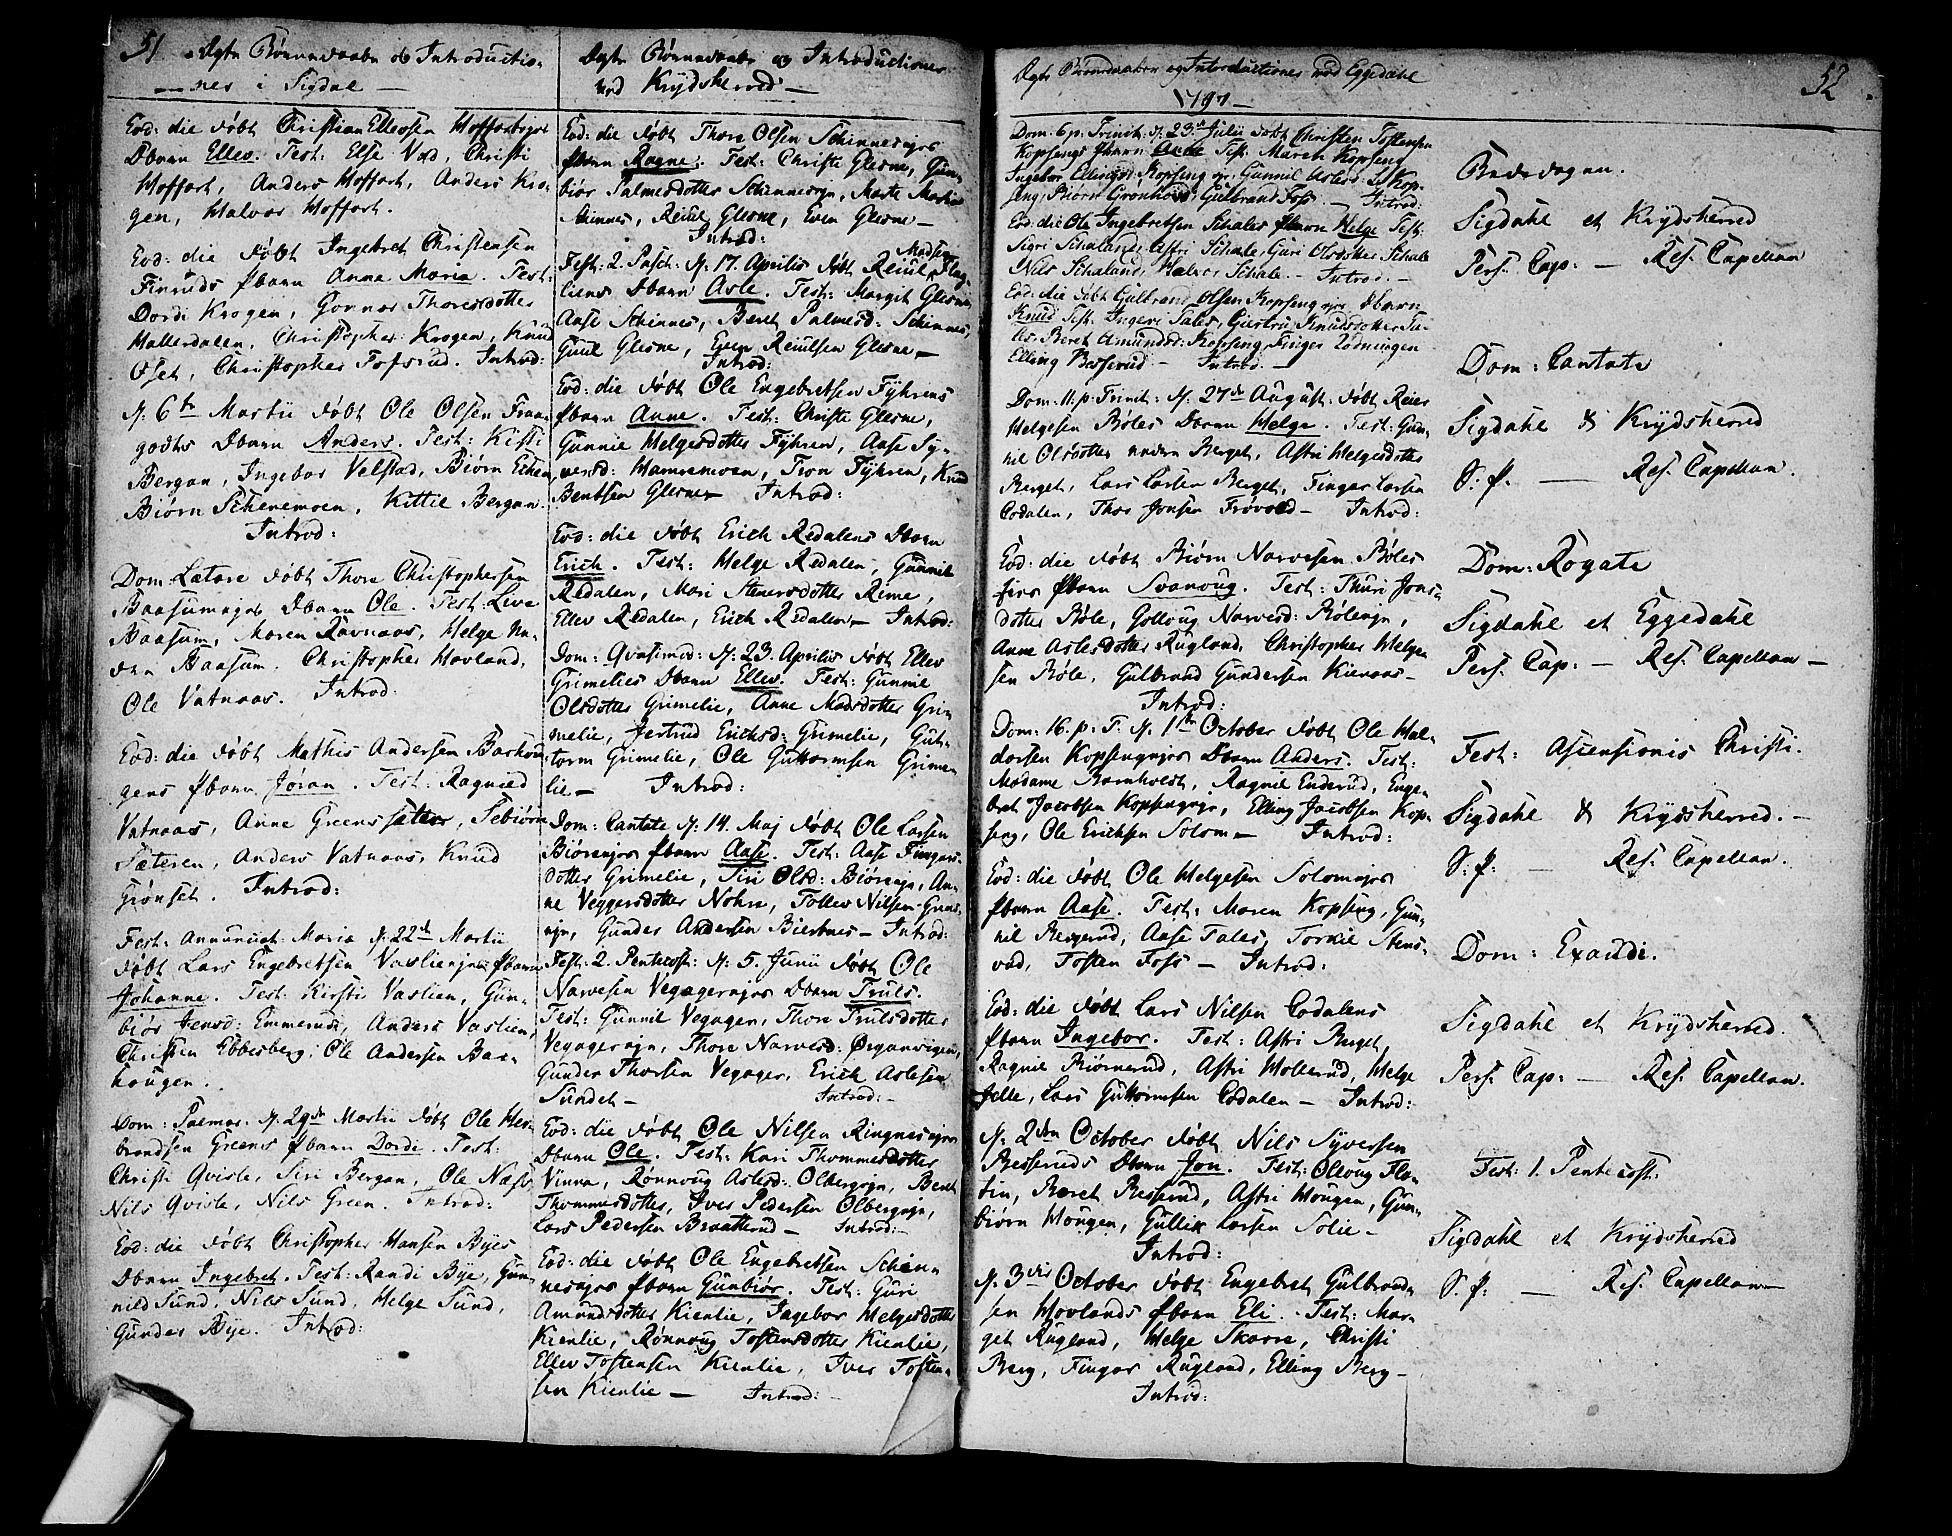 51
Ægte Børnedaaber & Introductio-
nes i Sigdal —
Eod: die døbt Christian Ellevsen Hoffartejer
Dbarn Ellev. Test: Else Vad, Christi
Hoffart, Anders Hoffart, Anders Kro-
gen, Halvor Hoffart.
Eod: die døbt Ingebret Christensen
Finruds Pbarn Anna Maria. Test:
Dordi Krogen, Gonnor Thoresdotter
Hallerdalen, Christopher Krogen, Knud
Oset, Christopher Tofsrud. Introd:
N: 6te Martii døbt Ole Olsen Fraa-
godts Dbarn Anders. Test: Kisti
Bergan, Ingebor Velstad, Biørn Echen
Biørn Schenemoen, Kittil Bergan.
Introd:
Dom: Lætare døbt Thore Christophersen
Baasumejes Dbarn Ole. Test: Live
Baasum, Maren Ravnaas, Helge Ne-
dre Baasum. Christopher Hovland,
Ole Vatnaas. Introd:
Eod: die døbt Mathis Andersen Barhou-
gens Pbarn Jøran. Test: Ragnild
Vatnaas, Anne Greensetter, Tebiørn
Sæteren, Anders Vatnaas, Knud
Grønset. Introd:
Fest: Annunciat: Maria N: 22de Martii
døbt Lars Engebretsen Vaslienejes Pbarn
Johanne. Test: Kirsti Vaslien, Gun-
biør Jensd: Emmerud, Anders Vaslien,
Christen Ebbesberg, Ole Andersen Bar-
hougen.
Dom: Palmar. N. 29de Martii døbt Ole Her-
brandsen Greens Pbarn Dordi. Test:
Christi Qvisle, Siri Bergan, Ole Næss
Nils Qvisle, Nils Green. Introd:
Eod: die døbt Christopher Hansen Byes
Dbarn Ingebret. Test: Randi Bye, Gun-
nild Sund, Nils Sund, Helge Sund,
Gunder Bye. Introd:
Ægte Børnedaaber og Introductioner
ved Krydsherred —
Eod: die døbt Thore Olsen Schinnesejes
Pbarn Ragne. Test: Christi Glesne, Gun-
biør Palmersdotter Schinnesejn, Marte
Schinnes, Reiul Glesne, Even Glesne —
Introd:
Fest: 2. Pasch: N. 17. Aprilis døbt Reiul Madsen Slag-
liens Dbarn Asle. Test: Margit Glesne,
Aase Schinnes, Beret Palmersd: Schinnes,
Guul Glesne, Even Reiulsen Glesne —
Introd:
Eod: die døbt Ole Engebretsen Fyhrens
Pbarn Anne. Test: Christi Glesne,
Gunnil Helgesdotter Fyhren, Aase Sy-
versd: Hammemoen, Tron Fyhren, Knud
Bentsen Glesne — Introd:
Eod: die døbt Erich Redalens Dbarn
Erich. Test: Helge Redalen, Gunnil
Redalen, Mari Stenersdotter Reme,
Ellev Redalen, Erich Redalen — Introd:
Dom: Qvasimod: N: 23. Aprilis døbt Ellev
Grimelies Dbarn Ellev. Test: Gunnil
Olsdotter Grimelie, Anne Madsdotter Gri-
melie, Jertrud Ericksd: Grimelie, Gut-
torm Grimelie, Ole Guttormsen Grime-
lie — Introd:
Dom: Cantate N: 14. Maj døbt Ole Larsen
Biøreejes Pbarn Aase. Test: Aase Fingars-
dotter Grimelie, Siri Olsd: Biøreejn, An-
ne Veggersdotter Nohre, Tollev Nilsen
ejn, Gunder Andersen Biertnes — Introd:
Fest: 2. Pentecost: N: 5. Junii døbt Ole
Narvesen Vegagerejes Dbarn Truls.
Test: Gunnil Vegager, Thore Trulsdotter
Vegagerejn, Thore Narvesd: Ørgenvigen,
Gunder Thorsen Vegager, Erich Aslesen
Sundet — Introd:
Eod: die døbt Ole Nilsen Ringnesejes
Dbarn Ole. Test: Kari Thommesdotter
Vinna, Rønnoug Aslesd: Olbergejn, Beret
Thommesdotter, Iver Pedersen Olbergejn,
Lars Pedersen Braatterud — Introd:
Eod: die døbt Ole Engebretsen Schin-
nesejes Pbarn Gunbiør. Test: Guri
Amundsdotter Kienlie, Ingebor Helgesdotter
Kienlie, Rønnoug Tostensdotter Kienlie,
Ellev Tostensen Kienlie, Iver Tosten-
sen Kienlie — Introd:
52
Ægte Børnedaaber og Introductiones ved Eggedahl
1797 —
Dom: 6 p: Trinit: N: 23de Julii døbt Christen Tostensen
Kopsengs Pbarn Anne Test: Mareth Kopseng
Ingebor Ellingsd: Kopseng ejr, Gunnil Aslesd: Kop-
seng, Biørn Grønhovd, Gulbrand Foss — Introd:
Eod: die Ole Ingebretsen Schales Pbarn Helge Test:
Sigri Schaland, Astri Schale, Guri Olsdotter Schale
Nils Schaland, Halvor Schale — Introd:
Eod: die døbt Gulbrand Olsen Kopseng ejes Dbarn
Knud Test: Ingeri Tales, Giertru Knudsdotter Ta-
les, Beret Amundsd: Kopseng, Finger Lødningen
Elling Besserud — Introd:
Dom: 11. p: Trinit: N: 27de August: døbt Reier
Helgesen Bøles Dbarn Helge. Test: Gun-
nil Olsdotter nedre Berget, Astri Helgesdotter
Berget, Lars Larsen Berget, Fingar Larsen
Codalen, Thor Jonsen Frøvold — Introd:
Eod: die døbt Biørn Narvesen Bøles
ejes Pbarn Svanoug. Test: Thuri Jons-
dotter Bøle, Golloug Narvesd: Bøleejn,
Anne Aslesdotter Rugland, Christopher Helge-
sen Bøle, Gulbrand Gundersen Kienaas —
Introd:
Dom: 16. p. T. N. 1ste October døbt Ole Hal-
dorsen Kopsengejes Dbarn Anders. Test:
Madame Barnholdt, Ragnil Enderud, Enge-
bret Jacobsen Kopsengejn, Elling Jacobsen Kop-
seng, Ole Erichsen Solem — Introd:
Eod: die døbt Ole Helgesen Solemejes
Pbarn Aase. Test: Maren Kopseng, Gun-
nil Bergerud, Aase Tales, Torkil Stens-
rud, Tosten Foss — Introd:
Eod: die døbt Lars Nilsen Codalens
Pbarn Ingebor. Test: Astri Berget,
Ragnil Biørnerud, Astri Mollerud, Helge
Jelle, Lars Guttormsen Codalen — Introd:
N: 2den October døbt Nils Syversen
Besseruds Dbarn Jon. Test: Olloug Flo-
tin, Beret Besserud, Astri Hougen, Gun-
biørn Hougen, Gullik Larsen Solie —
Introd:
N: 3die October døbt Engebret Gulbrand-
sen Hovlands Pbarn Eli. Test: Mar-
get Rugland, Helge Skarre, Christi
Berg, Fingar Rugland, Elling Berg —
Introd:
Bededagen.
Sigdahl et Krydsherred
Pers. Cap: — Res. Capellan
Dom: Cantate
Sigdahl & Krydsherred
S: p. — Res. Capellan.
Dom: Rogate
Sigdahl et Eggedahl
Pers. Cap: — Res. Capellan —
Fest: Ascensionis Christi.
Sigdahl & Krydsherred. —
S: p: — Res. Capellan.
Dom: Exaudi.
Sigdahl et Krydsherred.
Pers. Cap: — Res. Capellan.
Fest: 1. Pentecost:
Sigdahl et Krydsherred
S: p: — Res. Capellan